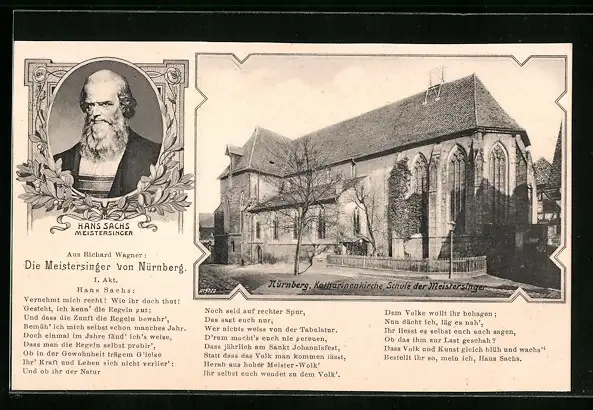 HANS SACHS
MEISTERSINGER
Nürnberg, Katharinenkirche, Schule der Meistersinger.
Aus Richard Wagner:
Die Meistersinger von Nürnberg.
I. Akt.
Hans Sachs:
Vernehmt mich recht! Wie ihr doch thut!
Gesteht, ich kenn' die Regeln gut;
Und dass die Zunft die Regeln bewahr',
Bemüh' ich mich selbst schon manches Jahr.
Doch einmal im Jahre fänd' ich's weise,
Dass man die Regeln selbst probir',
Ob in der Gewohnheit trägem G'leise
Ihr' Kraft und Leben sich nicht verlier':
Und ob ihr der Natur
Noch seid auf rechter Spur,
Das sagt euch nur,
Wer nichts weiss von der Tabulatur.
D'rum mocht's euch nie gereuen,
Dass jährlich am Sankt Johannisfest,
Statt dass das Volk man kommen lässt,
Herab aus hoher Meister-Wolk'
Ihr selbst euch wendet zu dem Volk'.
Dem Volke wollt ihr behagen;
Nun dächt ich, läg es nah',
Ihr liesst es selbst euch auch sagen,
Ob das ihm zur Last geschah?
Dass Volk und Kunst gleich blüh und wachs'
Bestellt ihr so, mein ich, Hans Sachs.